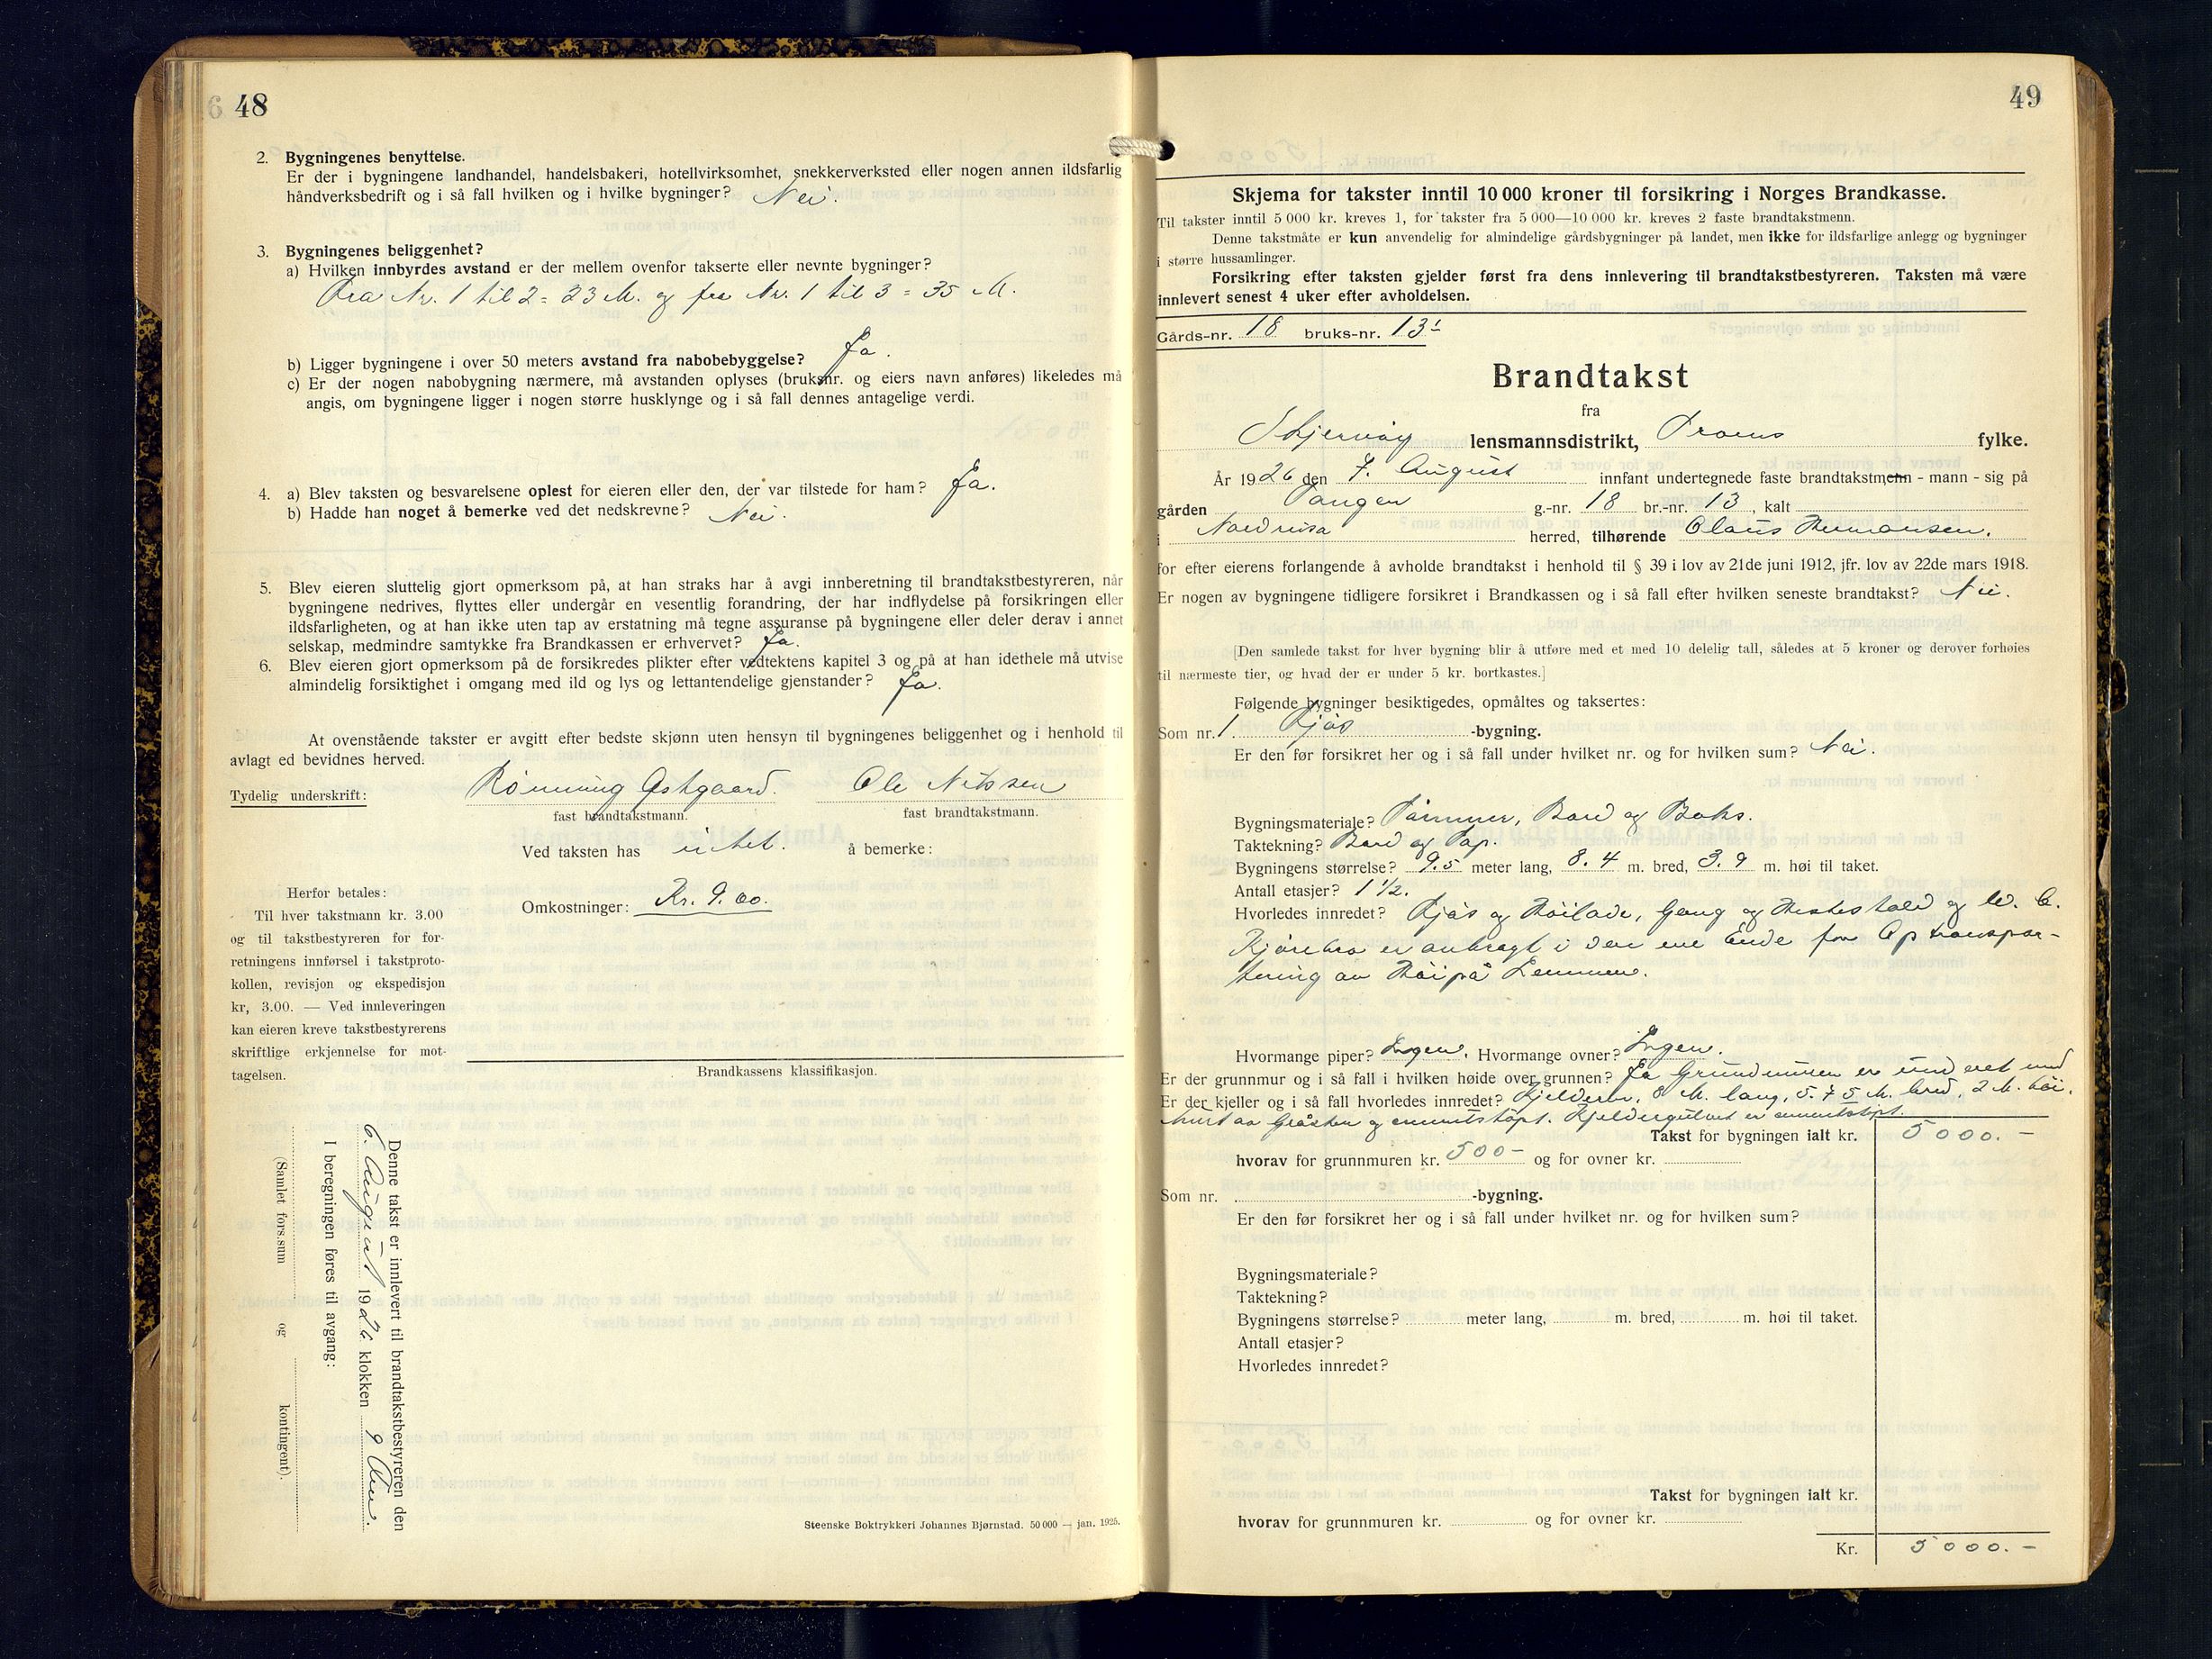 48
2. Bygningenes benyttelse.
Er der i bygningene landhandel, handelsbakeri, hotellvirksomhet, snekkerverksted eller nogen annen ildsfarlig
håndverksbedrift og i så fall hvilken og i hvilke bygninger? Nei.
3. Bygningenes beliggenhet?
a) Hvilken innbyrdes avstand er der mellem ovenfor takserte eller nevnte bygninger?
Fra Nr. 1 til 2 = 23 M. og fra Nr. 1 til 3 = 35 M.
b) Ligger bygningene i over 50 meters avstand fra nabobebyggelse? Ja.
c) Er der nogen nabobygning nærmere, må avstanden oplyses (bruksnr. og eiers navn anføres) likeledes må
angis, om bygningene ligger i nogen større husklynge og i så fall dennes antagelige verdi.
4. a) Blev taksten og besvarelsene oplest for eieren eller den, der var tilstede for ham? Ja.
b) Hadde han noget å bemerke ved det nedskrevne? Nei.
5. Blev eieren sluttelig gjort opmerksom på, at han straks har å avgi innberetning til brandtakstbestyreren, når
bygningene nedrives, flyttes eller undergår en vesentlig forandring, der har indflydelse på forsikringen eller
ildsfarligheten, og at han ikke uten tap av erstatning må tegne assuranse på bygningene eller deler derav i annet
selskap, medmindre samtykke fra Brandkassen er erhvervet? Ja.
6. Blev eieren gjort opmerksom på de forsikredes plikter efter vedtektens kapitel 3 og på at han idethele må utvise
almindelig forsiktighet i omgang med ild og lys og lettantendelige gjenstander? Ja.
At ovenstående takster er avgitt efter bedste skjønn uten hensyn til bygningenes beliggenhet og i henhold til
avlagt ed bevidnes herved.
Tydelig underskrift: Rönning Östgaard. Ole Nilssen
fast brandtakstmann. fast brandtakstmann.
Ved taksten has intet. å bemerke:
Herfor betales:
Til hver takstmann kr. 3.00
og til takstbestyreren for for-
retningens innførsel i takstproto-
kollen, revisjon og ekspedisjon
kr, 3.00. — Ved innleveringen
kan eieren kreve takstbestyrerens
skriftlige erkjennelse for mot-
tagelsen.
Omkostninger: Kr. 9.00.
Brandkassens klassifikasjon.
Denne takst er innlevert til brandtakstbestyreren den
6 August 1926 klokken 9 Fm.
I beregningen føres til avgang:
(Samlet fors.sum og kontingent).
Steenske Boktrykkeri Johannes Bjørnstad. 50 000 — jan. 1925.
49
Skjema for takster inntil 10 000 kroner til forsikring i Norges Brandkasse.
Til takster inntil 5 000 kr. kreves 1, for takster fra 5 000—10 000 kr. kreves 2 faste brandtakstmenn.
Denne takstmåte er kun anvendelig for almindelige gårdsbygninger på landet, men ikke for ildsfarlige anlegg og bygninger
i større hussamlinger.
Forsikring efter taksten gjelder først fra dens innlevering til brandtakstbestyreren. Taksten må være
innlevert senest 4 uker efter avholdelsen.
Gårds-nr. 18 bruks-nr. 13
Brandtakst
fra
Skjervöy lensmannsdistrikt, Troms fylke.
År 1926 den 7. August innfant undertegnede faste brandtakstmenn - mann - sig på
gården Tangen g.-nr. 18 br.-nr. 13, kalt
i Nordreisa herred, tilhørende Claus Hermansen.
for efter eierens forlangende å avholde brandtakst i henhold til § 39 i lov av 21de juni 1912, jfr. lov av 22de mars 1918.
Er nogen av bygningene tidligere forsikret i Brandkassen og i så fall efter hvilken seneste brandtakst? Nei.
[Den samlede takst for hver bygning blir å utføre med et med 10 delelig tall, således at 5 kroner og derover forhøies
til nærmeste tier, og hvad der er under 5 kr. bortkastes.]
Følgende bygninger besiktigedes, opmåltes og taksertes:
Som nr. 1 Fjös -bygning.
Er den før forsikret her og i så fall under hvilket nr. og for hvilken sum? Nei.
Bygningsmateriale? Tömmer, Bord og Boks.
Taktekning? Bord og Pap.
Bygningens størrelse? 9.5 meter lang, 8.4 m. bred, 3.9 m. høi til taket.
Antall etasjer? 1 1/2.
Hvorledes innredet? Fjös og Höilade, Gang og Hestestald og W. C.
Kjörebro er anbragt i den ene Ende for Optranspor-
tering av Höi på Lemmen.
Hvormange piper? Ingen. Hvormange ovner? Ingen.
Er der grunnmur og i så fall i hvilken høide over grunnen? Ja Grundmuren er
Er der kjeller og i så fall hvorledes innredet? Kjelderen, 8 M. lang, 5.75 M. bred, 2 M. höi,
murt av Gråsten og cementstöpt. Kjeldergulvet er cementstöpt.
Takst for bygningen ialt kr. 5000.-
hvorav for grunnmuren kr. 500- og for ovner kr.
Som nr. -bygning.
Er den før forsikret her og i så fall under hvilket nr. og for hvilken sum?
Bygningsmateriale?
Taktekning?
Bygningens størrelse? meter lang, m. bred, m. høi til taket.
Antall etasjer?
Hvorledes innredet?
Takst for bygningen ialt kr.
hvorav for grunnmuren kr. og for ovner kr.
Kr. 5000.-